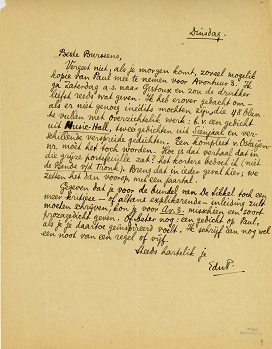 Dinsdag.
Beste Burssens,
Vergeet niet, als je morgen komt, zoveel mogelijk
kopie van Paul mee te nemen voor Avontuur 3. Ik
ga Zaterdag a.s. naar Gistoux en zou de drukker
liefst reeds wat geven. Ik heb erover gedacht om –
als er niet genoeg inedits mochten zijn – die 48 blz.
te vullen met overzichtelijk werk: b.v. een gedicht
uit Music-Hall, twee gedichten uit Sienjaal en ver-
schillende verspreide gedichten. Een kompleet v. Ostaijen-
nr. moet het toch worden. Hoe is dat verhaal dat in
die grijze portefeuille zat? het kortere bedoel ik (niet
de Bende v/d Stronk). Breng dat in ieder geval hier; we
zetten het dan voorop, met een paar
Gegeven dat je voor de bundel van De Sikkel toch een
meer kritiese – of althans explikerende – inleiding zult
moeten schrijven, kon je voor Av. 3. misschien een soort
prozagedicht geven. Of beter nog: een gedicht op Paul,
als je je daartoe geïnspireerd voelt. Ik schrijf dan nog wel
een noot van een regel of vijf.
Steeds hartelik je
EduP.